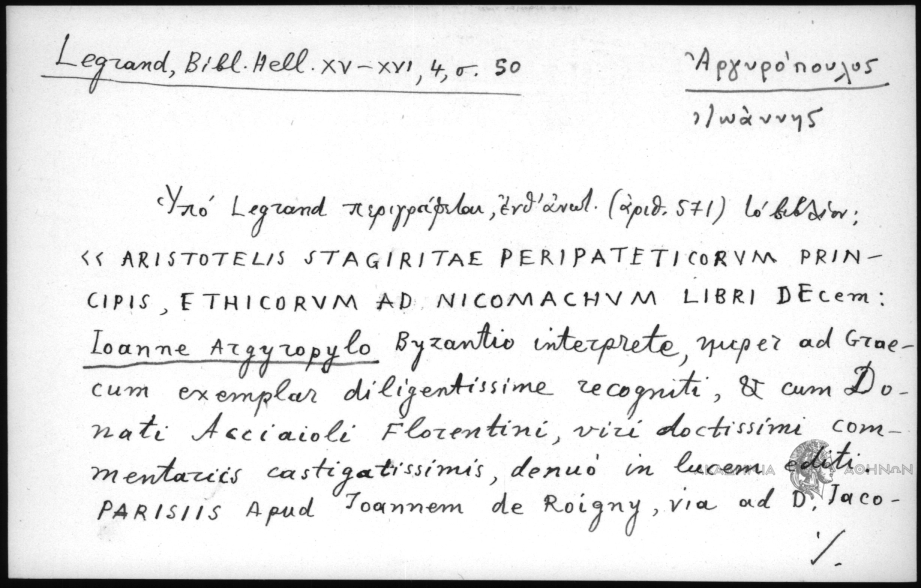 Legrand, Bibl. Hell. XV-XVI, 4, σ. 50
Ἀργυρόπουλος
Ἰωάννης
Ὑπό Legrand περιγράφεται, ἔνθ' ἀνωτ. (ἀριθ. 571) τό βιβλίον:
<< ARISTOTELIS STAGIRITAE PERIPATETICORVM PRIN-
CIPIS, ETHICORVM AD NICOMACHVM LIBRI DEcem:
Ioanne Argyropylo Byzantio interprete, nuper ad Grae-
cum exemplar diligentissime recogniti, & cum Do-
nati Acciaioli Florentini, viri doctissimi com-
mentariis castigatissimis, denuó in lucem editi.
PARISIIS Apud Joannem de Roigny, via ad D. Jaco-
./.
ΑΚΑΔΗΜΙΑ ΑΘΗΝΩΝ